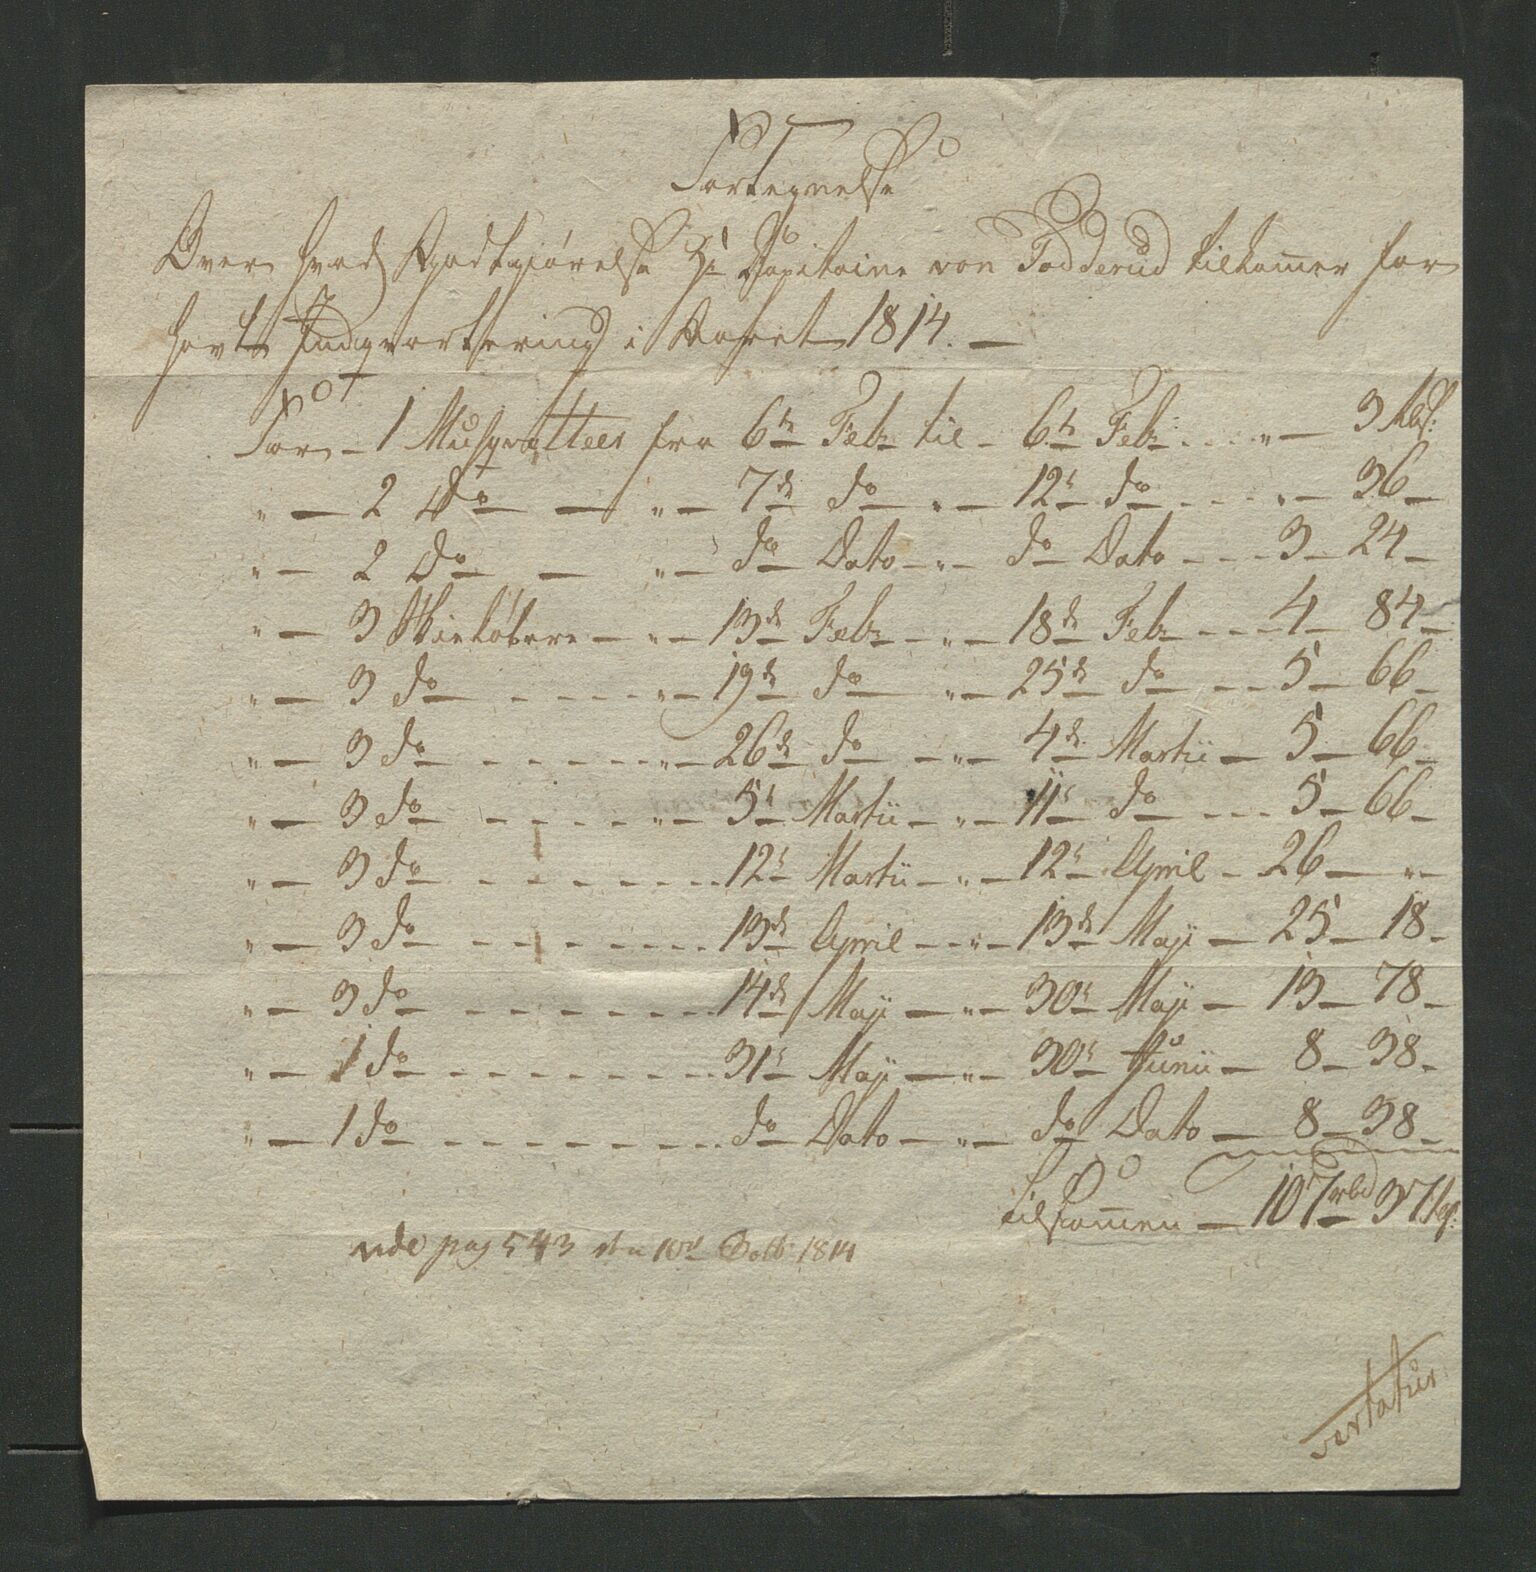 Fortegnelse
Over hvad Godtgiørelse Hr Capitaine von Todderud tilkommer for
havte Indqvartering i Aaret 1814. —
For – 1 Musqvatteer fra 6te Febr til – 6te Febr. . . . „ — 3 rbß:
„ — 2 Do — „ — 7de do „ — 12te do . . . „ — 36 —
„ — 2 Do — „ — do Dato — „ — do Dato - - - 3 — 24 —
„ — 3 Skieløbere — „ — 13de Febr — „ — 18de Febr - - - 4 — 84 —
„ — 3 do - - - - „ — 19de do „ — 25de do - - - 5 — 66 —
„ — 3 do - - - - - „ — 26de do — „ — 4de Martii — 5 — 66 —
„ — 3 do - - - - „ — 5te Martii — „ — 11te do - - - 5 — 66 —
„ — 3 do - - - - - - - 12te Martii — „ — 12te April – 26 — „ —
„ — 3 do - - - - - - - 13de April — „ — 13de Maji — 25 — 18 –
„ — 3 do - - - - - - - 14de Maji — „ — 30te Maji — 13 — 78 –
„ — 1 do - - - - - - - - 31te Maji — „ — 30te Junii — 8 — 38 –
„ — 1 do - - - - - - - - do Dato — „ — do Dato — 8 — 38 –
tilsammen — 107 rbd 37 ß:
vide pag 543 den 10d Octb: 1814
vertatur.